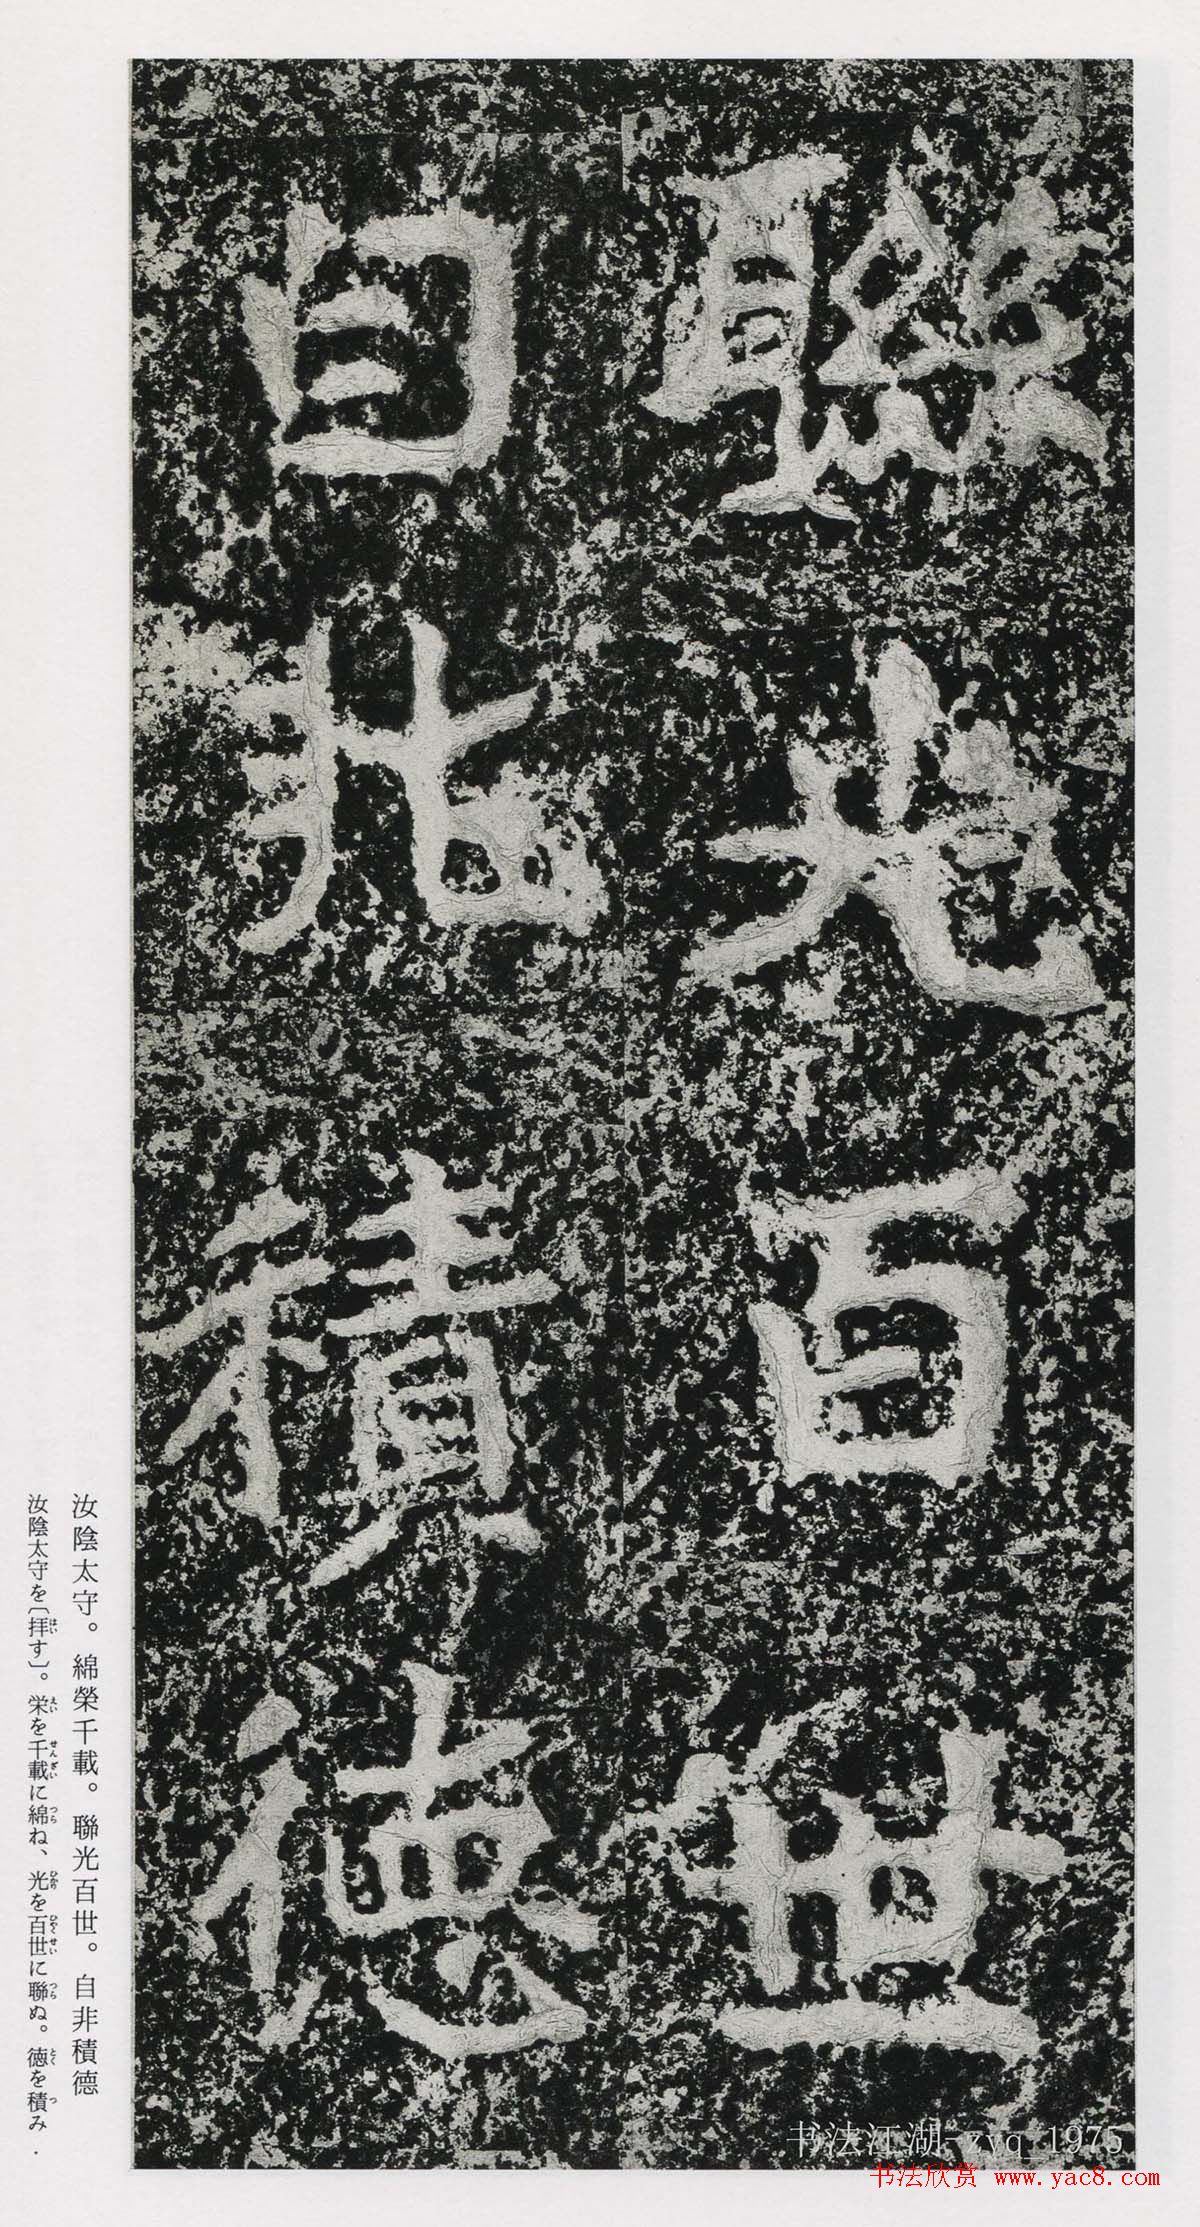 聯光百世
自非積德
汝陰太守。綿榮千載。聯光百世。自非積德
汝陰太守を〔拝す〕。栄を千載に綿ね、光を百世に聯ぬ。徳を積み
书法江湖-zyq_1975
书法欣赏 www.yac8.com